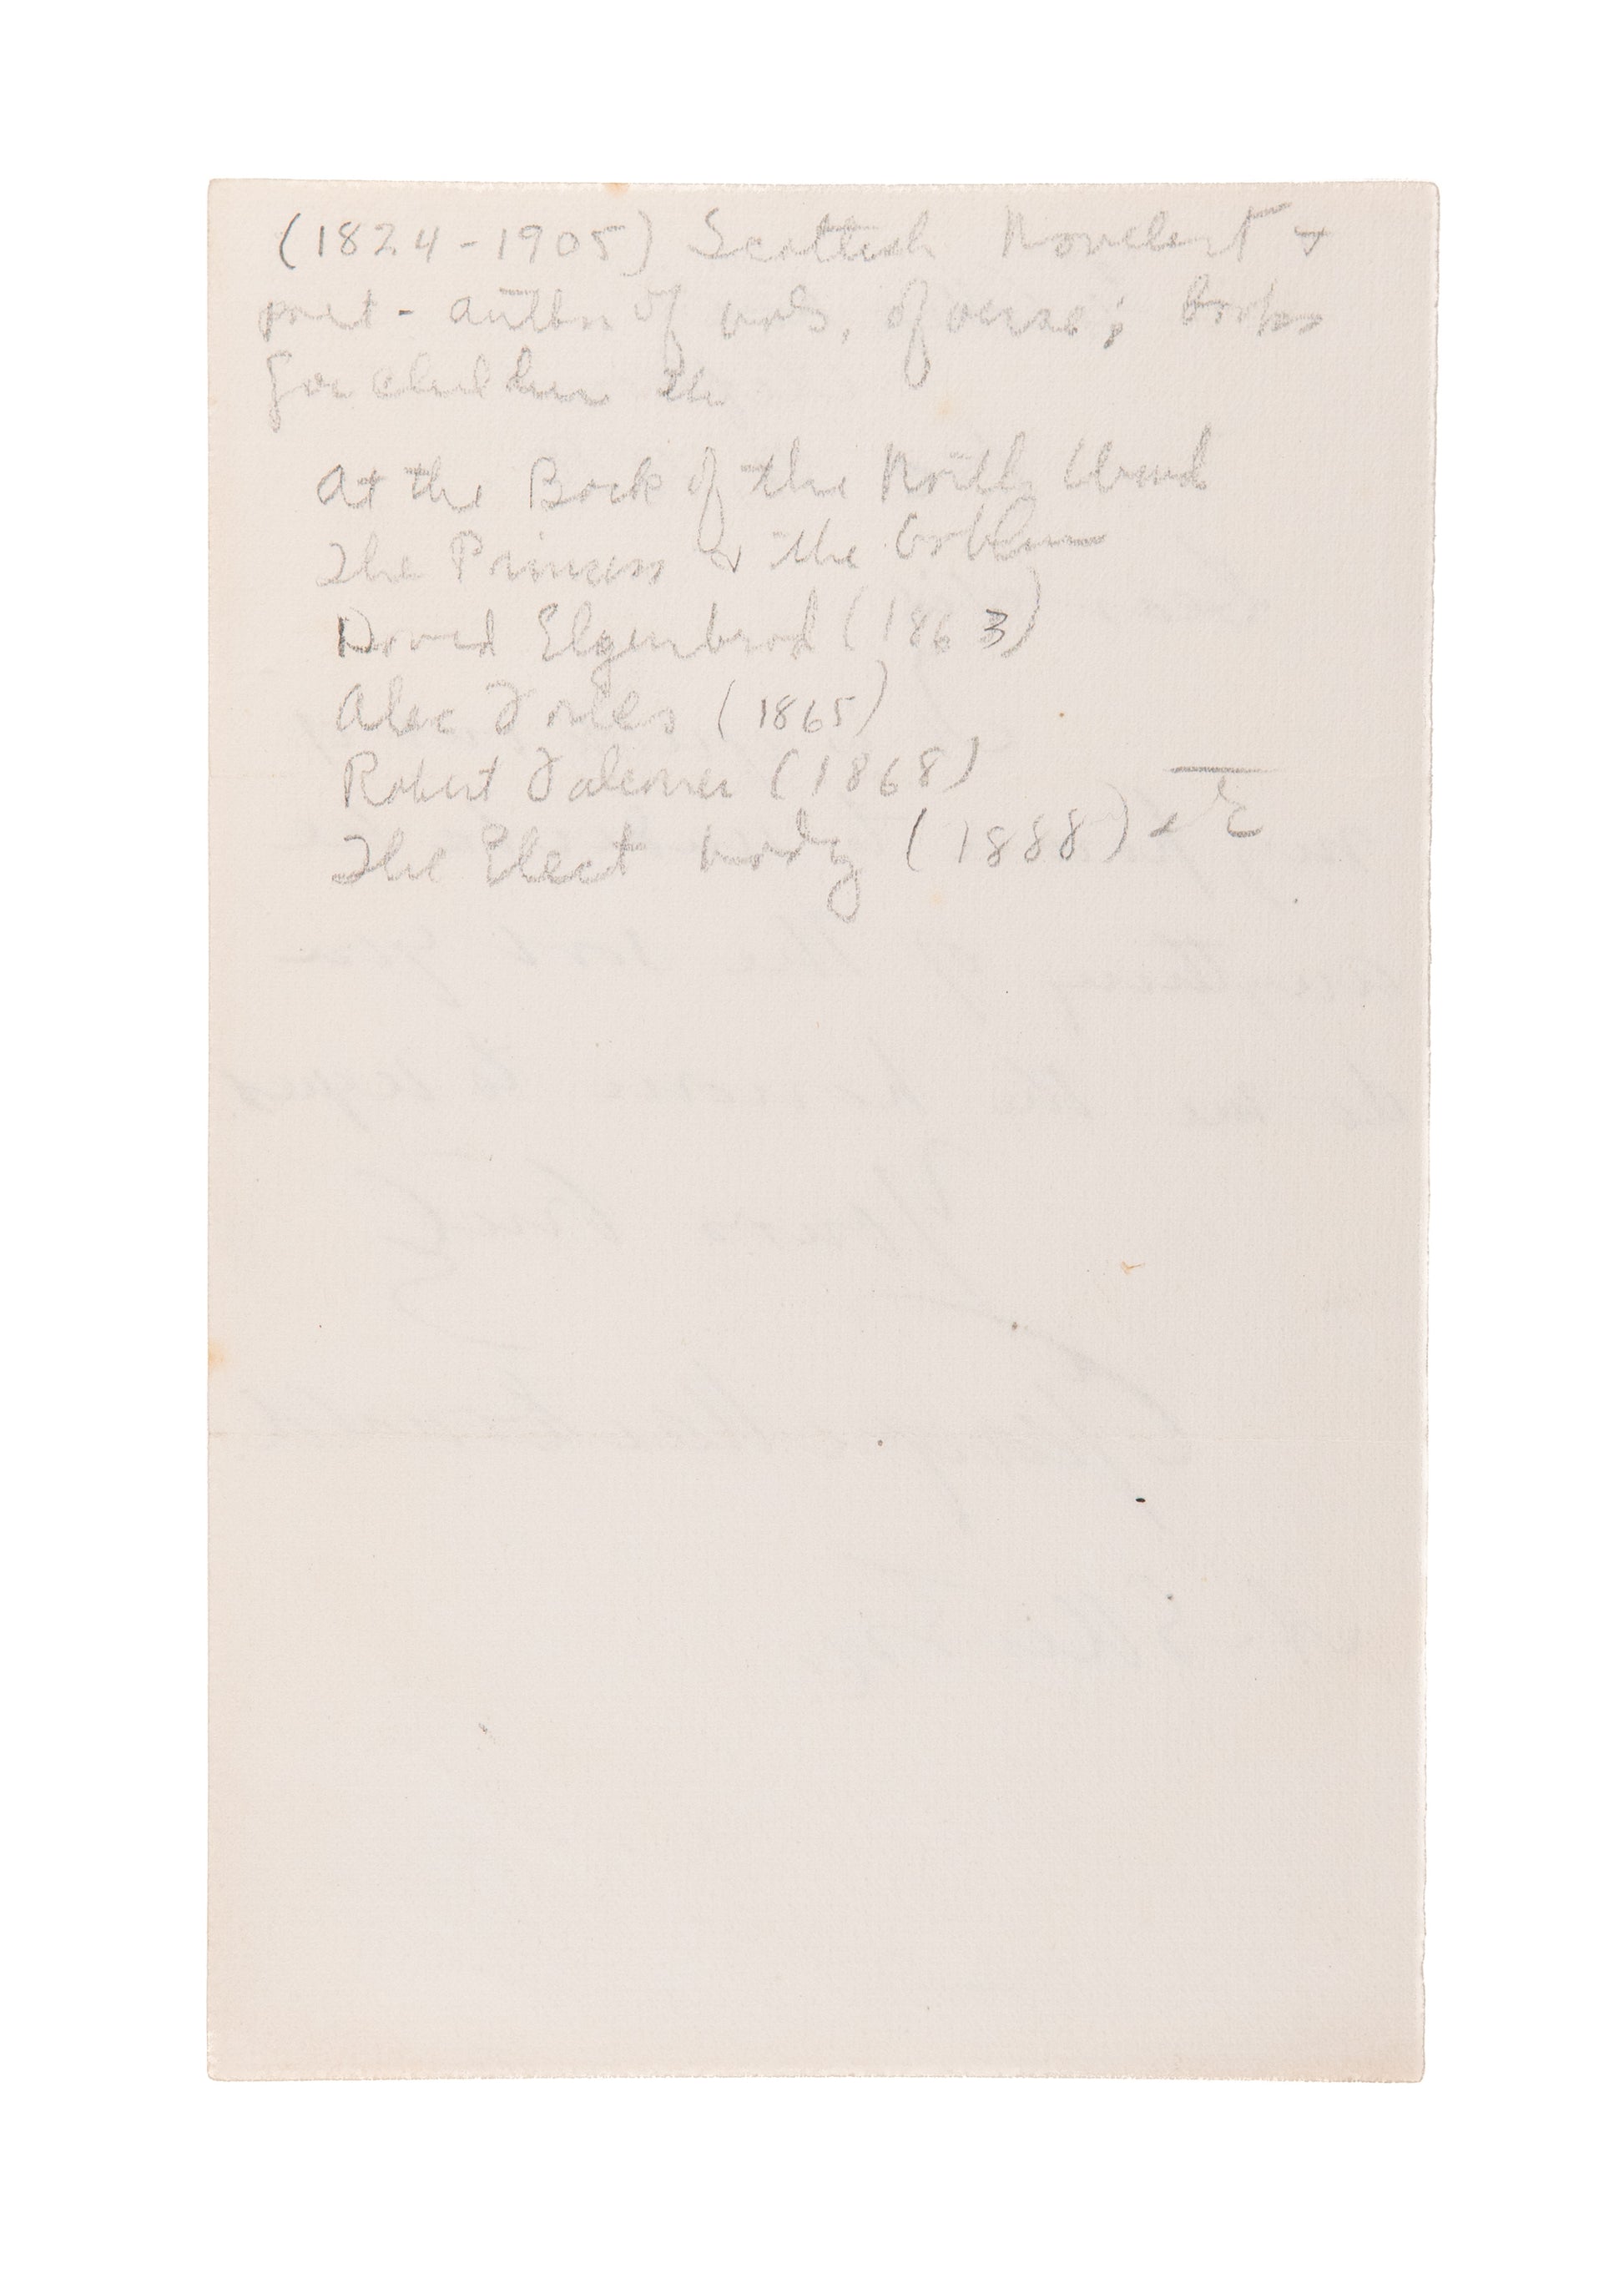 (1824-1905) Scottish Novelist &
poet - author of vols. of verse; books
for children etc
At the Back of the North Wind
The Princess & the Goblin
David Elginbrod (1863)
Alec Forbes (1865)
Robert Falconer (1868)
The Elect Lady (1888) etc